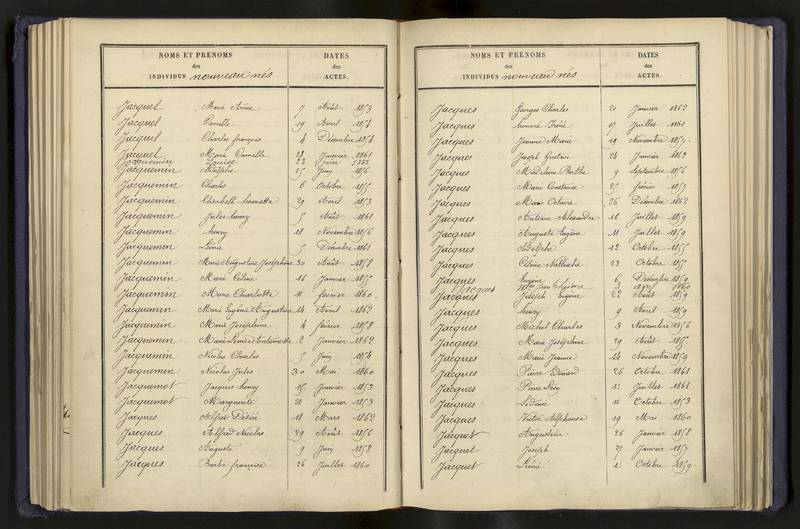 NOMS ET PRÉNOMS
des
INDIVIDUS nouveau nés
DATES
des
ACTES.
Jacquel Marie Anne 7 Août 1853
Jacquel Camille 19 Avril 1854
Jacquel Charles françois 4 Décembre 1854
Jacquel Marie Camille 28 Janvier 1861
Jacquemin Louise 22 Juin 1862
Jacquemin Adolphe 25 Juin 1856
Jacquemin Charles 6 Octobre 1855
Jacquemin Elisabeth henriette 29 Avril 1853
Jacquemin Jules henry 5 Août 1861
Jacquemin henry 18 Novembre 1856
Jacquemin Léonie 5 Décembre 1861
Jacquemin Marie Augustine Joséphine 30 Août 1858
Jacquemin Marie Céline 16 Janvier 1855
Jacquemin Marie Charlotte 11 février 1860
Jacquemin Marie Eugénie Augustine 14 Avril 1862
Jacquemin Marie Joséphine 4 février 1858
Jacquemin Marie Louise Antoinette 2 Janvier 1862
Jacquemin Nicolas Charles 5 Juin 1854
Jacquemin Nicolas Jules 30 Mai 1860
Jacquemot Jacques henry 15 Janvier 1853
Jacquemot Marguerite 21 Janvier 1853
Jacques Alfred Désiré 18 Mars 1862
Jacques Alfred Nicolas 29 Août 1856
Jacques Auguste 9 Juin 1858
Jacques Barbe françoise 26 Juillet 1860
NOMS ET PRÉNOMS
des
INDIVIDUS nouveau nés
DATES
des
ACTES.
Jacques Georges Charles 20 Janvier 1862
Jacques honoré 17 Juillet 1861
Jacques Jeanne Marie 19 Novembre 1857
Jacques Joseph Gustave 24 Janvier 1862
Jacques Madeleine Berthe 9 Septembre 1856
Jacques Marie Constance 25 février 1857
Jacques Marie Octavie 26 Décembre 1862
Jacques Antoine Alexandre 16 Juillet 1859
Jacques Auguste Eugène 11 Juillet 1859
Jacques Adolphe 12 Octobre 1855
Jacques Céline Nathalie 23 Octobre 1855
Jacques Eugène 6 Décembre 1859
Jacques 3 avril 1860
Jacques Joseph Eugène 22 Août 1859
Jacques henry 9 Avril 1859
Jacques Michel Charles 3 Novembre 1856
Jacques Marie Joséphine 29 Août 1855
Jacques Marie Jeanne 14 Novembre 1859
Jacques Pierre Edouard 26 Octobre 1861
Jacques Pierre 12 Juillet 1861
Jacques 11 Octobre 1853
Jacques Victor Alphonse 19 Mai 1860
Jacquet Augustine 26 Janvier 1858
Jacquet Joseph 27 Janvier 1857
Jacquet Léonie Octobre 1859